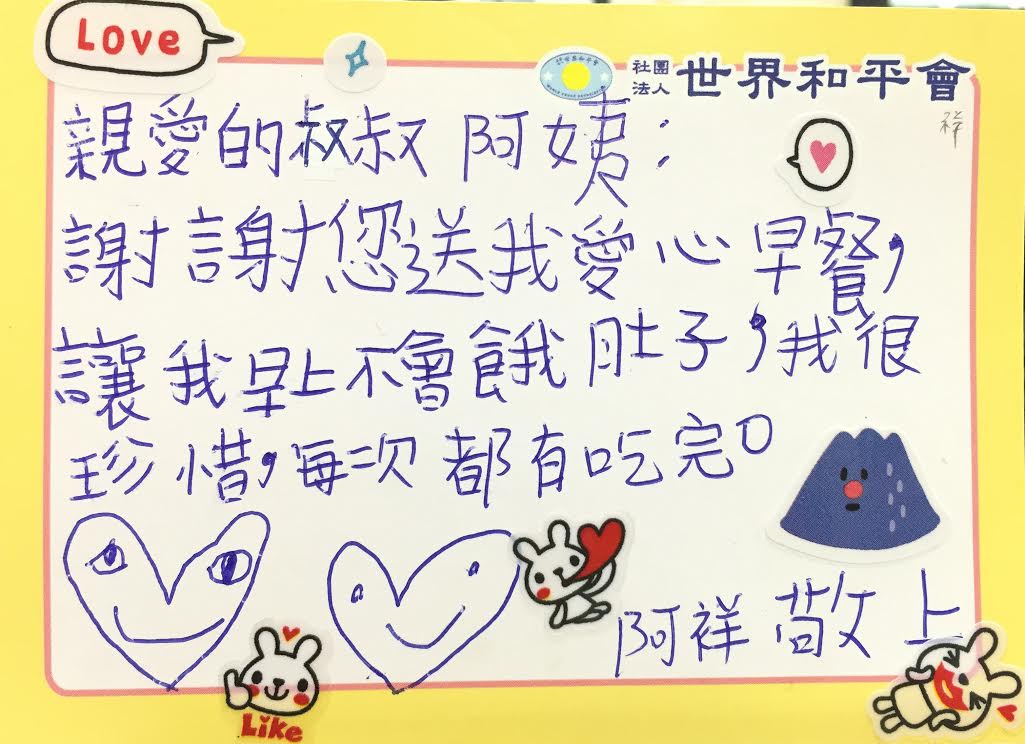 Love
社團法人 世界和平會
祥
親愛的叔叔阿姨：
謝謝您送我愛心早餐，
讓我早上不會餓肚子，我很
珍惜，每次都有吃完。
阿祥敬上
Like